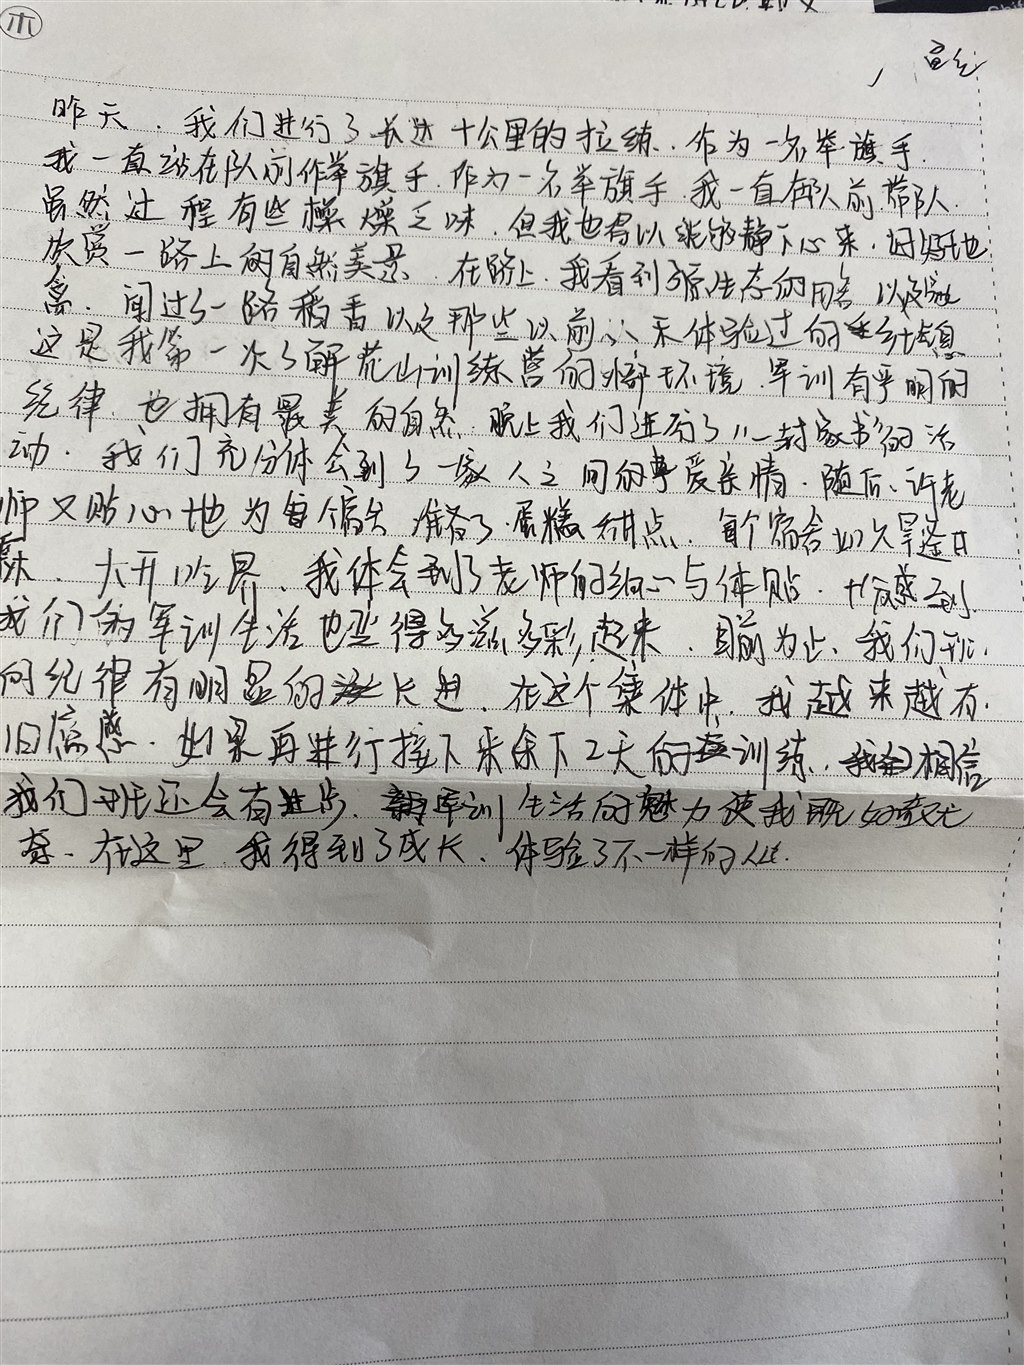 木
昨天，我们进行了长达十公里的拉练，作为一名举旗手，
我一直站在队前作举旗手，作为一名举旗手，我一直在队前带队，
虽然过程有些燥燥乏味，但我也得以能够静下心来，好好地
欣赏一路上的自然美景，在路上，我看到了原生态的 以及
闻过了一路稻香以及那些以前从未体验过的乡镇
这是我第一次了解荒山训练营的外部环境，军训有严明的
纪律，也拥有最美的自然，晚上我们进行了“一封家书”的活
动，我们充分体会到了家人之间的尊爱亲情，随后，许老
师又贴心地为每个宿舍准备了蛋糕甜点，每个宿舍如久旱逢甘
霖，大开 界，我体会到了老师的细心与体贴，也感到
我们的军训生活也变得多滋多彩起来，目前为止，我们班
的纪律有明显的长进，在这个集体中，我越来越有
归属感，如果再进行接下来余下2天的训练，相信
我们班还会有进步，军训生活的魅力使我既好奇又
在这里，我得到了成长，体验了不一样的人生.